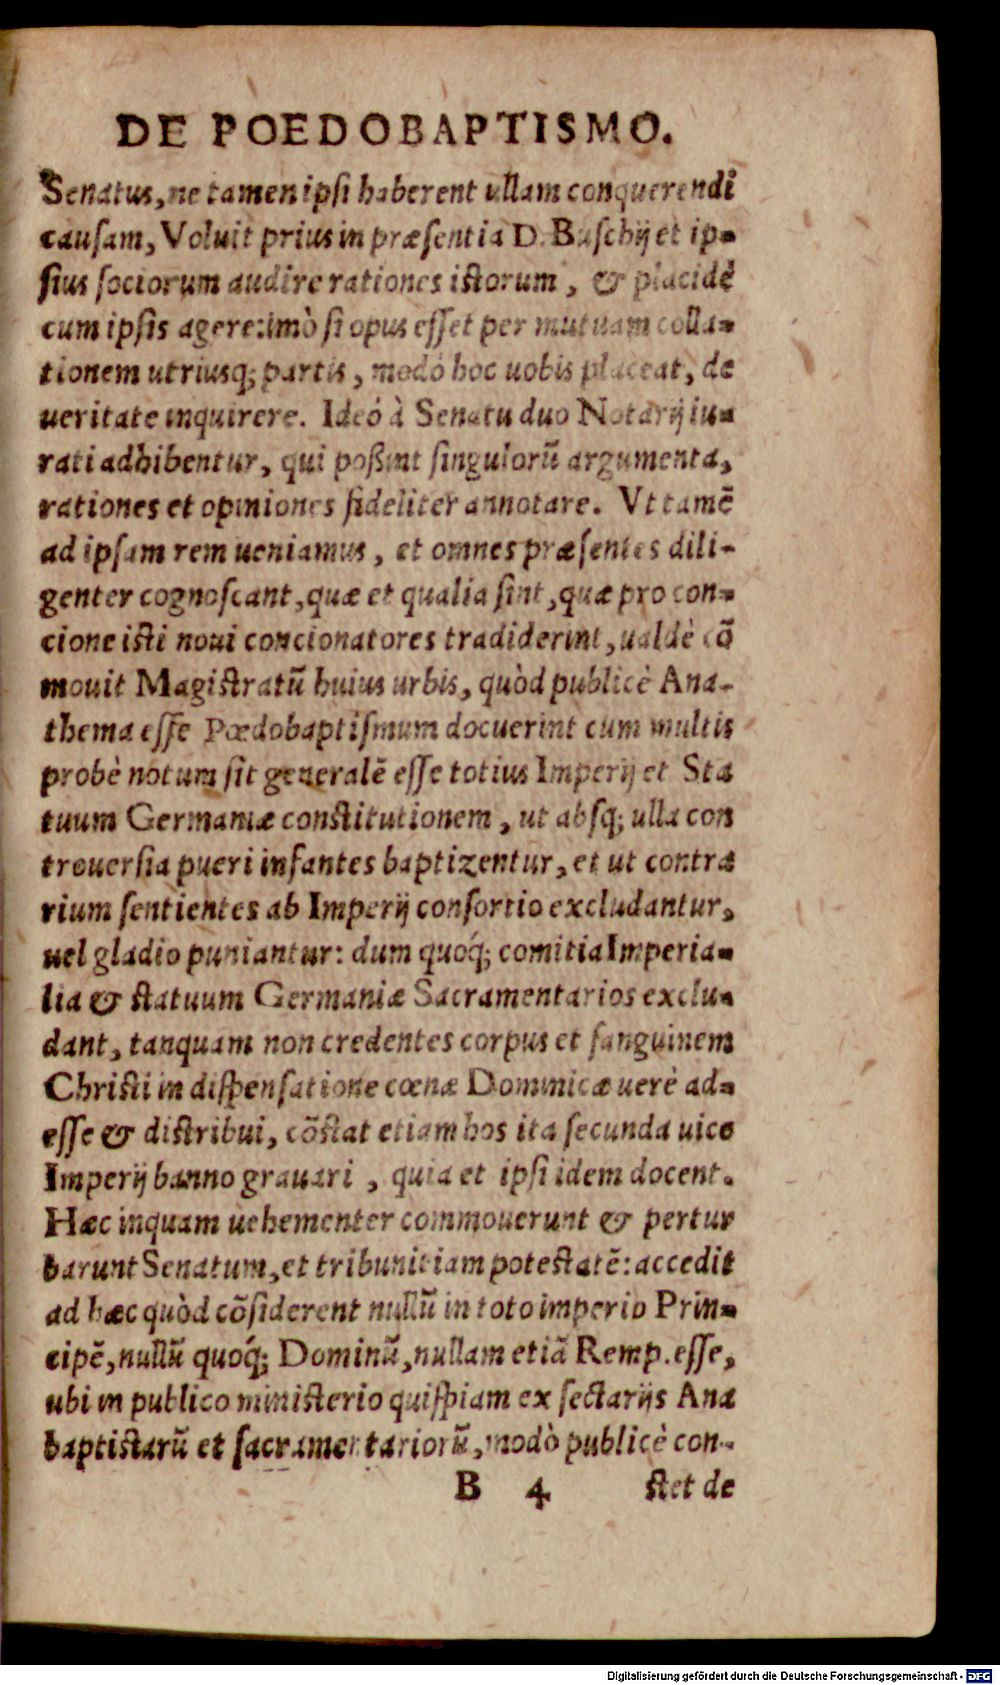 DE POEDOBAPTISMO.
Senatus, ne tamen ipsi haberent ullam conquerendi
causam, Voluit prius in præsentia D. Buschij et ip-
sius sociorum audire rationes istorum, & placidè
cum ipsis agere: imò si opus esset per mutuam colla-
tionem utriusq; partis, modó hoc uobis placeat, de
ueritate inquirere. Ideó à Senatu duo Notarij iu-
rati adhibentur, qui poßint singulorũ argumenta,
rationes et opiniones fideliter annotare. Vt tamẽ
ad ipsam rem ueniamus, et omnes præsentes dili-
genter cognoscant, quæ et qualia sint, quæ pro con-
cione isti noui concionatores tradiderint, ualdè cõ
mouit Magistratũ huius urbis, quòd publicè Ana-
thema esse Pœdobaptismum docuerint cum multis
probè notum sit generalẽ esse totius Imperij et Sta
tuum Germaniæ constitutionem, ut absq; ulla con
trouersia pueri infantes baptizentur, et ut contra
rium sentientes ab Imperij consortio excludantur,
uel gladio puniantur: dum quoq́; comitia Imperia-
lia & statuum Germaniæ Sacramentarios exclu-
dant, tanquam non credentes corpus et sanguinem
Christi in dispensatione cœnæ Dominicæ uerè ad-
esse & distribui, cõstat etiam hos ita secunda uice
Imperij banno grauari, quia et ipsi idem docent.
Hæc inquam uehementer commouerunt & pertur
barunt Senatum, et tribunitiam potestatẽ: accedit
ad hæc quòd cõsiderent nullũ in toto imperio Prin-
cipẽ, nullũ quoq́; Dominũ, nullam etiã Remp. esse,
ubi in publico ministerio quispiam ex sectarijs Ana
baptistarũ et sacramentariorũ, modò publicè con-
B 4 stet de
Digitalisierung gefördert durch die Deutsche Forschungsgemeinschaft - DFG